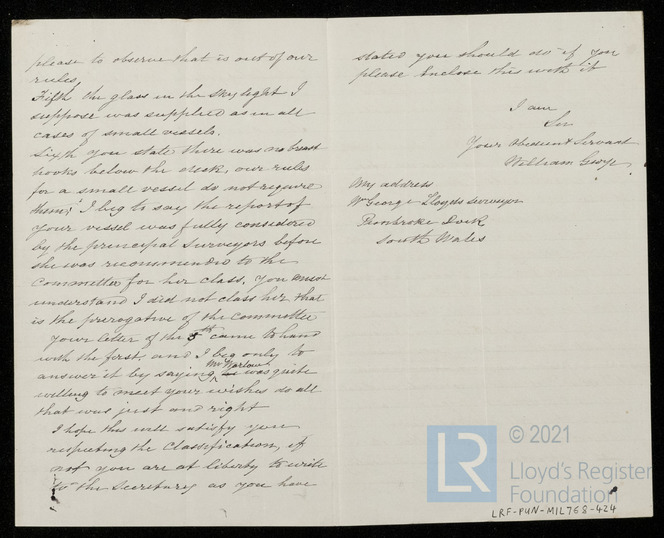 please to observe that is out of our
rules,
Fifth the glass in the Sky light I
suppose was supplied as in all
cases of small vessels.
Sixth you state there was no breast
hooks below the deck, our rules
for a small vessel do not require
them, I beg to say the report of
your vessel was fully considered
by the principal Surveyors before
she was recommended to the
Committee for her class. You must
understand I did not class her that
is the prerogative of the Committee
your letter of the 5th came to hand
with the first, and I beg only to
answer it by saying Mr Warlow was quite
willing to meet your wishes do all
that was just and right
I hope this will satisfy you
respecting the Classification, if
not you are at liberty to write
to the Secretary as you have
stated you should do if you
please Enclose this with it
I am
Sir
Your Obedient Servant
William George
My address
Wm George Lloyds Surveyor
Pembroke Dock
South Wales
LR
© 2021
Lloyd's Register
Foundation
LRF-PUN-MIL768-424